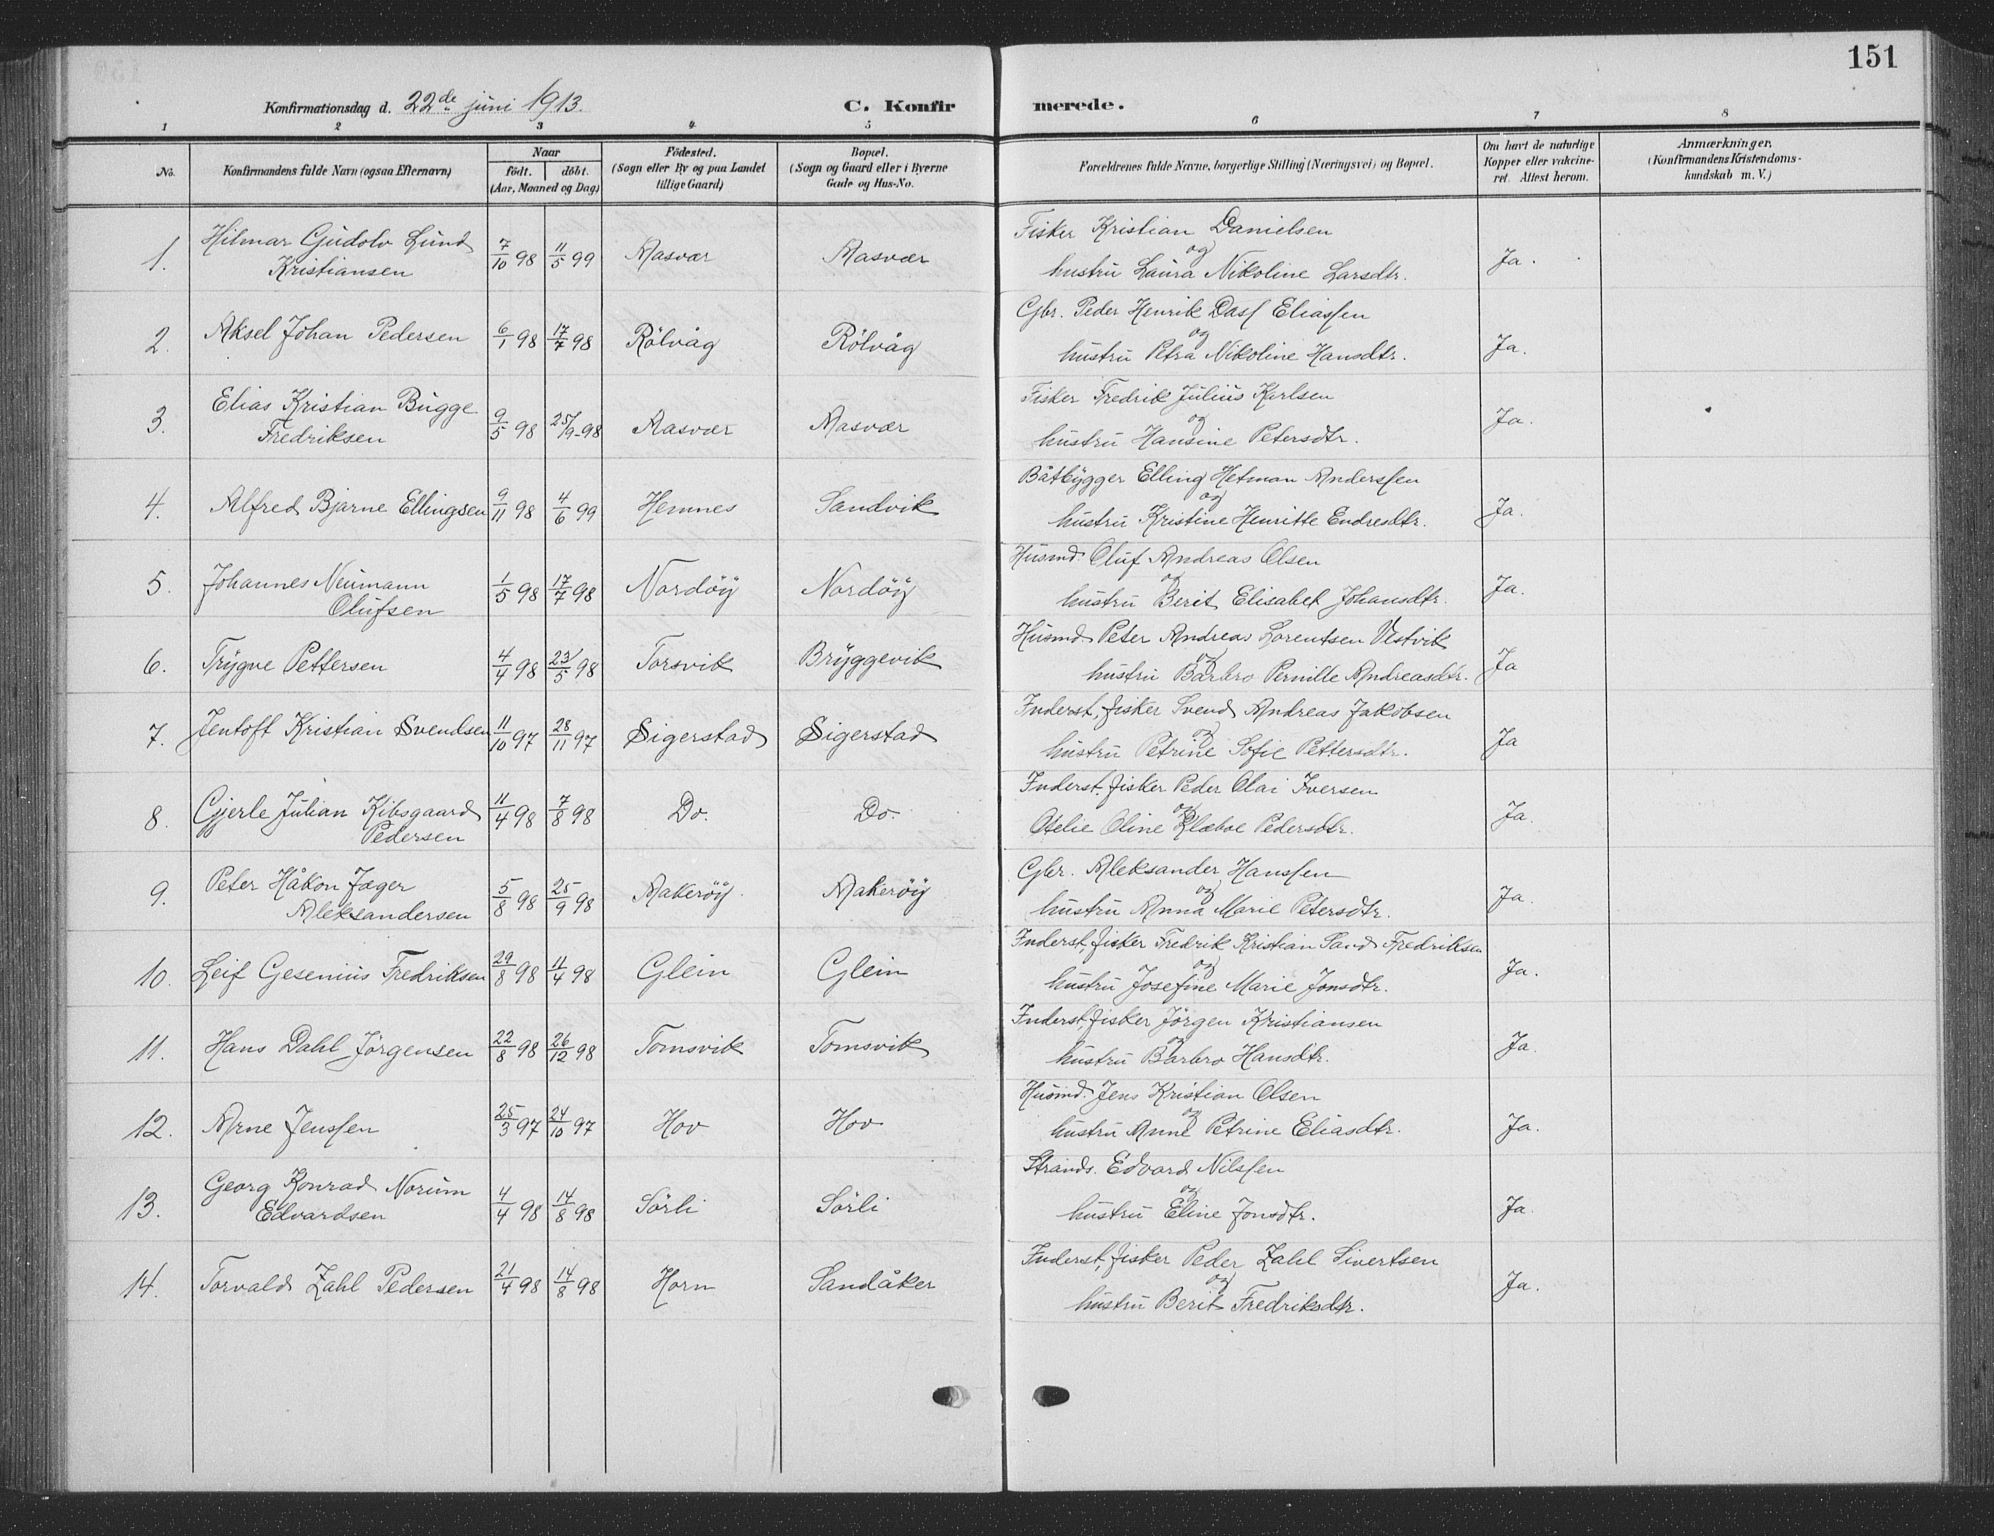 151
Konfirmationsdag d. 22de juni 1913. C. Konfir merede.
1 2 3 4 5 6 7 8
No. Konfirmandens fulde Navn (ogsaa Efternavn)
Naar
født. døbt.
(Aar, Maaned og Dag)
Fødested.
(Sogn eller By og paa Landet
tillige Gaard)
Bopæl.
(Sogn og Gaard eller i Byerne
Gade og Hus-No.
Forældrenes fulde Navne, borgerlige Stilling (Næringsvei) og Bopæl.
Om havt de naturlige
Kopper eller vakcine-
ret. Attest herom.
Anmærkninger.
(Konfirmandens Kristendoms-
kundskab m. V.)
1. Hilmar Gudolv Lund
Kristiansen 7/10 98 11/5 99 Aasvær Aasvær
Fisker Kristian Danielsen
og
hustru Laura Nikoline Larsdtr. Ja.
2. Aksel Johan Pedersen 6/1 98 17/7 98 Rölvåg Rölvåg
Gbr. Peder Henrik Dass Eliassen
og
hustru Petra Nikoline Hansdtr. Ja.
3. Elias Kristian Bugge
Fredriksen 9/5 98 25/9-98 Aasvær Aasvær
Fisker Fredrik Julius Karlsen
og
hustru Hansine Petersdtr. Ja.
4. Alfred Bjarne Ellingsen 9/11 98 4/6 99 Hemnes Sandvik
Båtbygger Elling Hetman Anderssen
og
hustru Kristine Henritte Endresdtr. Ja.
5. Johannes Neumann
Olufsen 1/5 98 17/7 98 Nordöy Nordöy
Husmd. Oluf Andreas Olsen
og
hustru Berit Elisabet Johansdtr. Ja.
6. Trygve Pettersen 4/4 98 23/5 98 Torsvik Bryggevik
Husmd. Peter Andreas Lorentsen Vestvik
og
hustru Barbro Pernille Andreasdtr. Ja
7. Jentoft Kristian Svendsen 11/10 97 28/11 97 Sigerstad Sigerstad
Inderst, fisker Svend Andreas Jakobsen
og
hustru Petrine Sofie Pettersdtr. Ja
8. Gjerle Julian Kibsgaard
Pedersen 11/4 98 7/8 98 Do. Do.
Inderst. fisker Peder Olai Iversen
og
Otelie Oline Klæboe Pedersdtr. Ja.
9. Peter Håkon Jæger
Aleksandersen 5/8 98 25/9 98 Aakeröy Aakeröy
Gbr. Aleksander Hanssen
og
hustru Anna Marie Petersdtr. Ja.
10. Leif Gesenius Fredriksen 29/8 98 11/4 98 Glein Glein
Inderst, fisker Fredrik Kristian Sand Fredriksen
og
hustru Josefine Marie Jonsdtr. Ja.
11. Hans Dahl Jörgensen 22/8 98 26/12 98 Tomsvik Tomsvik
Inderst, fisker Jörgen Kristiansen
og
hustru Barbro Hansdtr. Ja.
12. Arne Jenssen 25/3 97 24/10 97 Hov Hov
Husmd. Jens Kristian Olsen
og
hustru Anne Petrine Eliasdtr. Ja.
13. Georg Konrad Norum
Edvardsen 4/4 98 14/8 98 Sörli Sörli
Strands. Edvard Nilssen
og
hustru Eline Jonsdtr. Ja.
14. Torvald Zahl Pedersen 21/4 98 14/8 98 Horn Sandåker
Inderst, fisker Peder Zahl Sivertsen
og
hustru Berit Fredriksdtr. Ja.